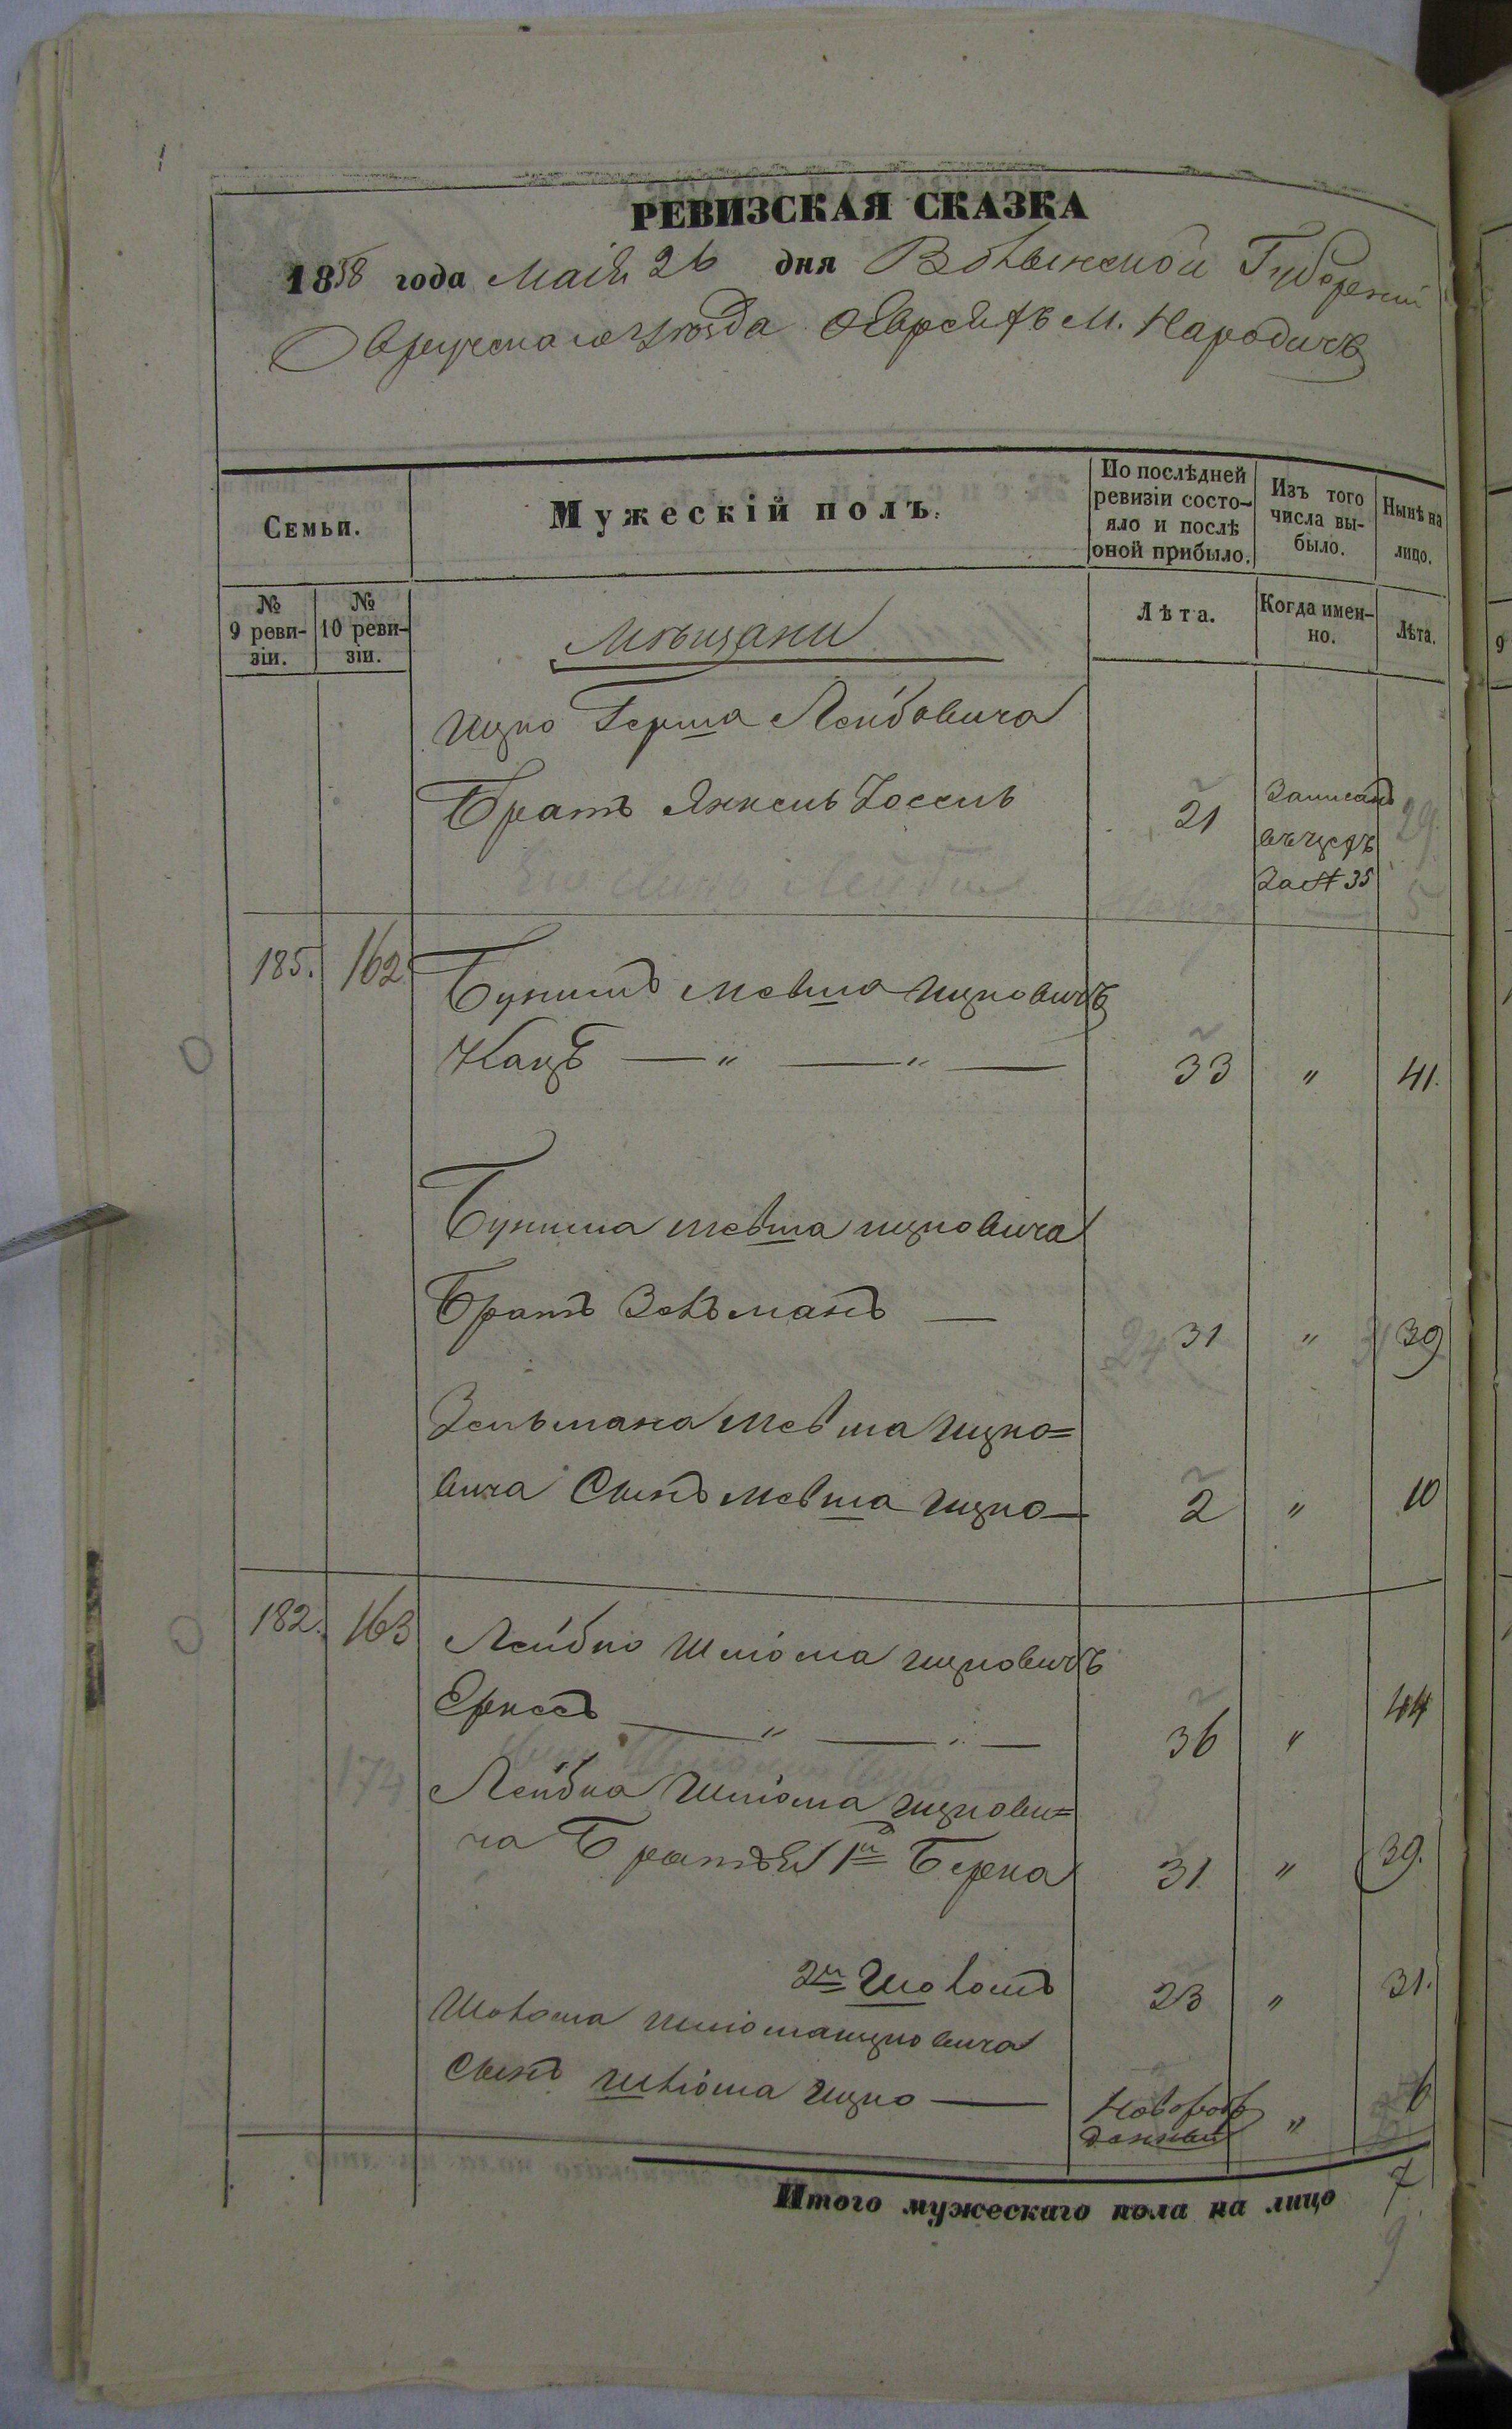 РЕВИЗСКАЯ СКАЗКА
1858 года Маія 26 дня Волынской Губерніи
Овручскаго уѣзда о Евреяхъ м. Народичъ
Семьи.
Мужескій полъ.
По послѣдней ревизіи состо-
яло и послѣ оной прибыло.
Изъ того числа вы-
было.
Нынѣ на лицо.
№ 9 реви-
зіи.
№ 10 реви-
зіи.
Мѣщани
Лѣта.
Когда имен-
но.
Лѣта.
Ицко Герша Лейбовича
Братъ Янкель Іоссель 21 Записанъ 29
въ
за № 35
Его сынъ Лейба 5
185. 162 Бунимъ Мовша Ицковичъ
Кацъ — " — " — 33 " 41.
Бунима Мовша Ицковича
Братъ Зельманъ — 24 31 " 39
Зельмана Мовша Ицко=
вича Сынъ Мовша Ицко — 2 " 10
182. 163 Лейбко Шліома Ицковичъ
— " — " — 36 " 44
174
Лейбка Шліома Ицкови= 3
ча Братья 1й Берко 31 " 39.
2й Шоломъ 23 " 31.
Шолома Шліома Ицковича
Сынъ Шліома Ицко — Новорож
денный " 6
Итого мужескаго пола на лицо 7
9